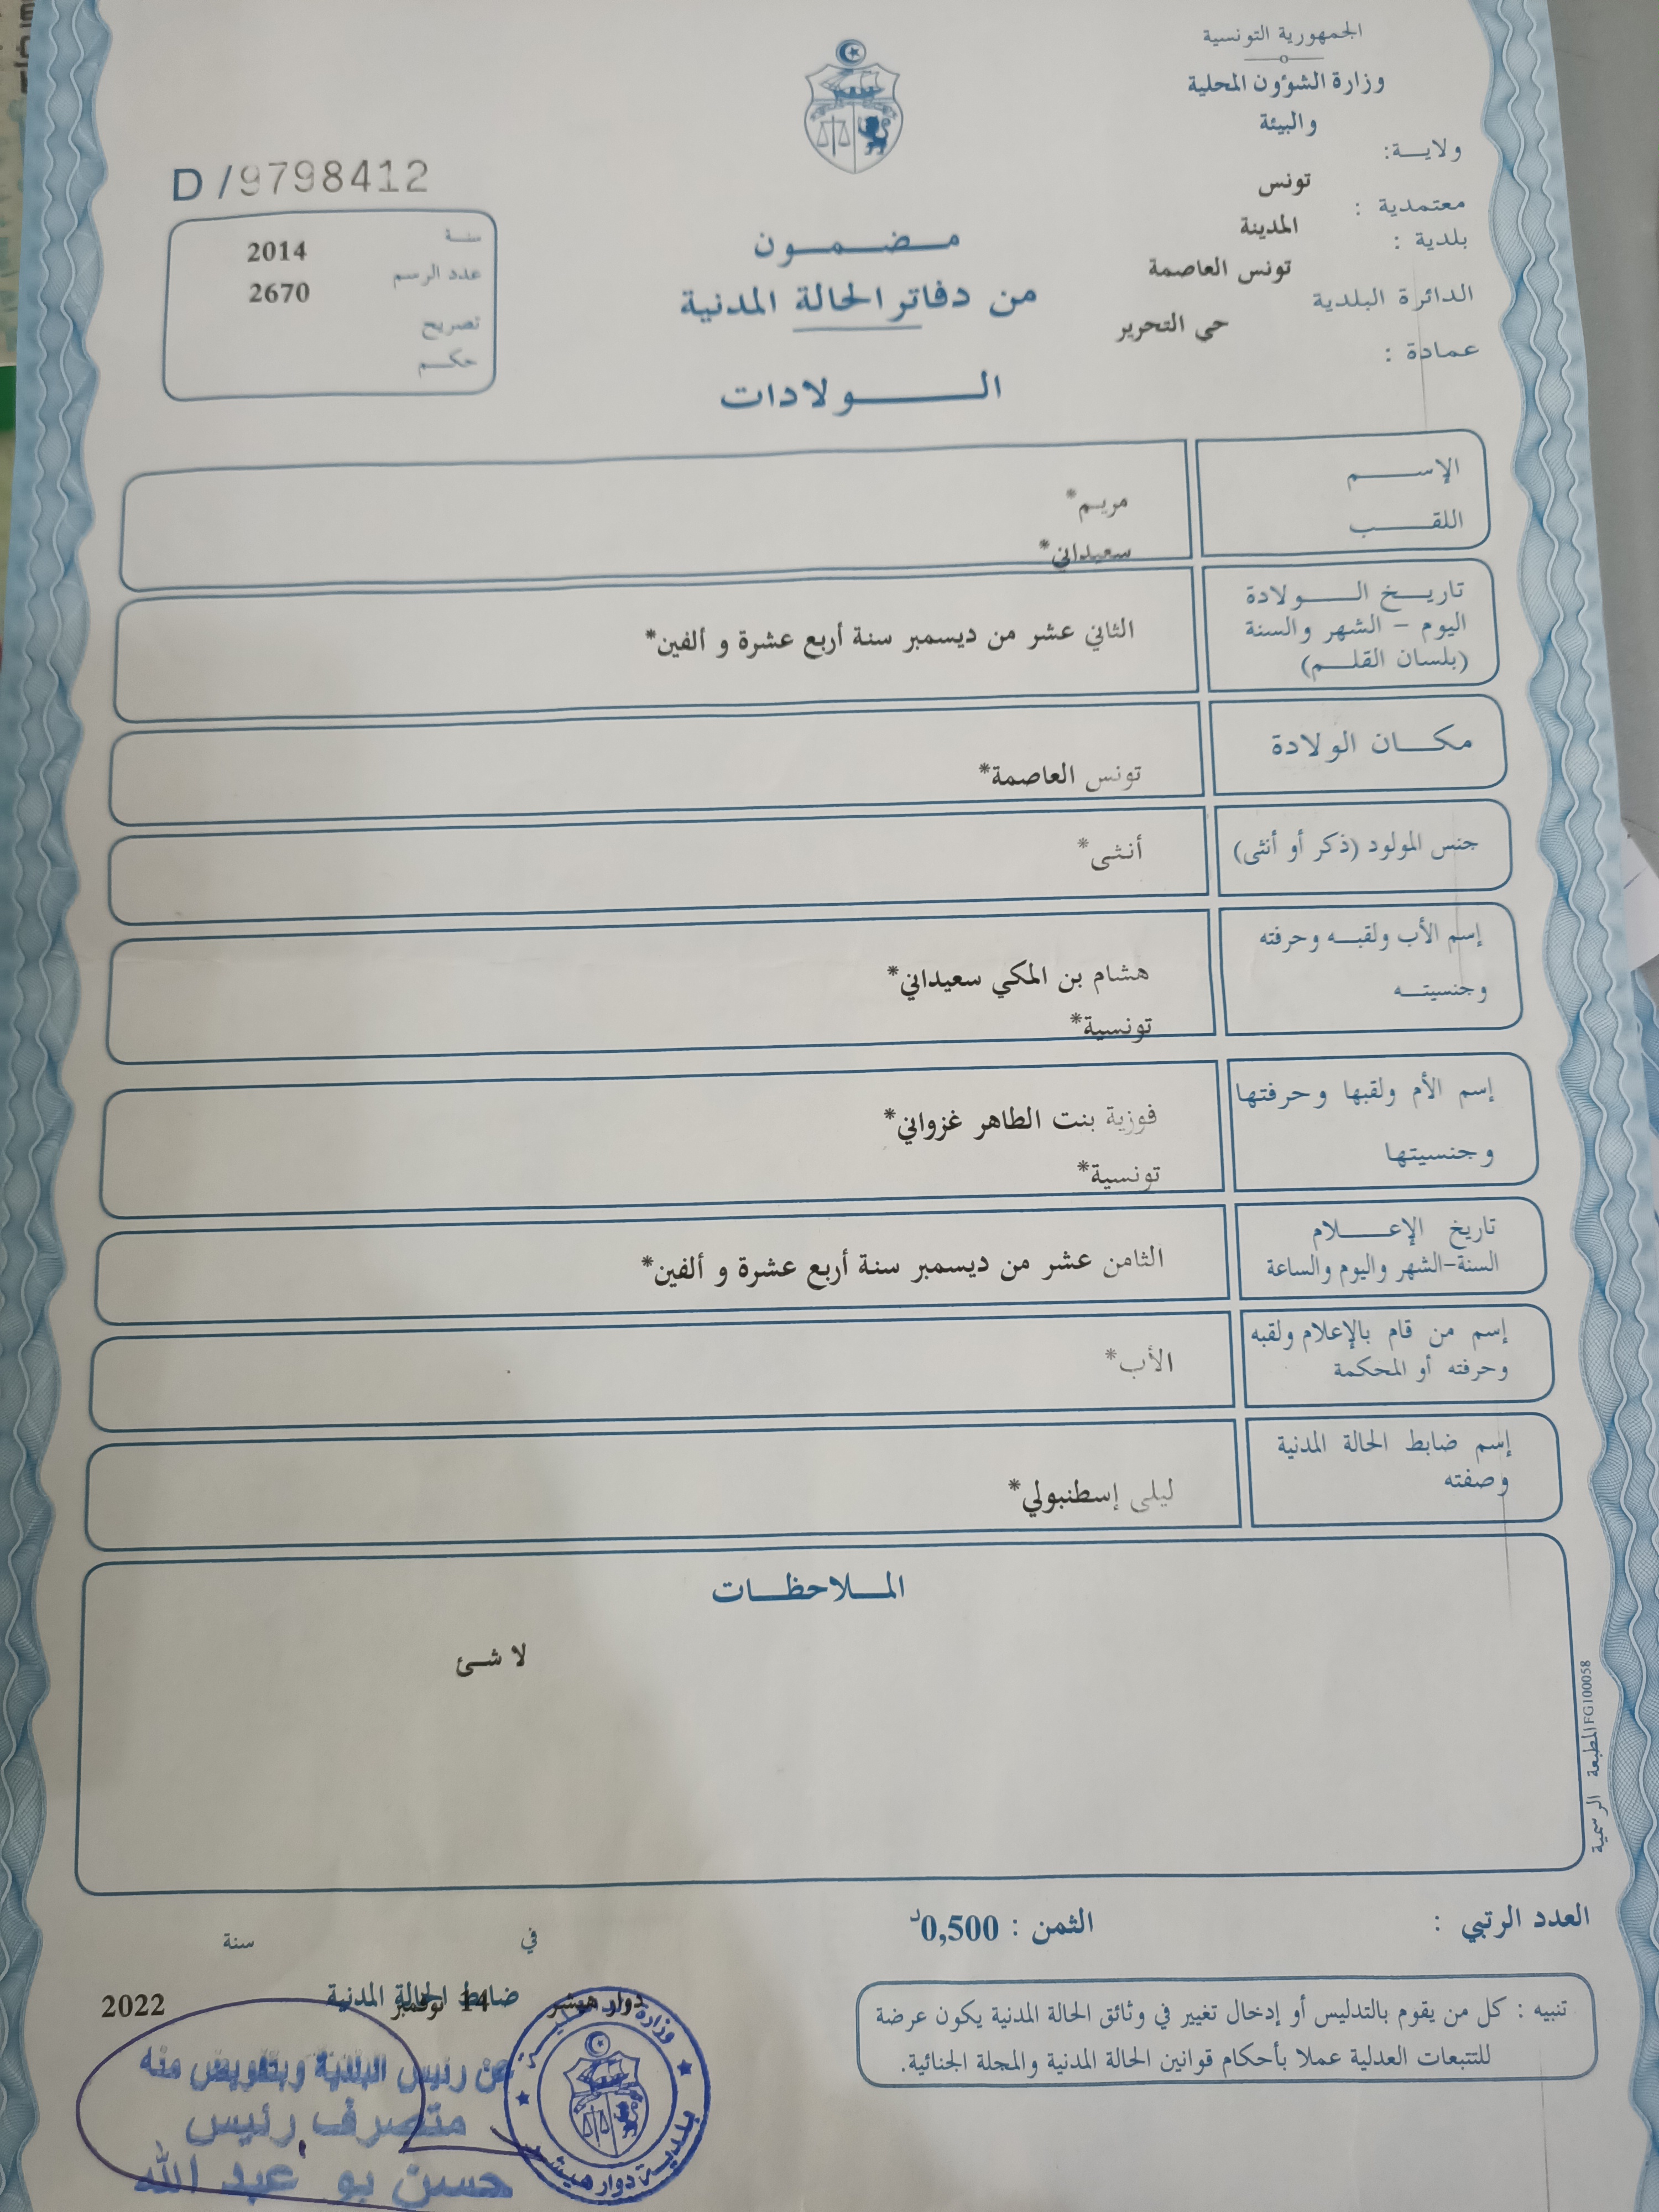 الجمهورية التونسية
وزارة الشؤون المحلية
والبيئة
ولايـــة:
تونس
معتمدية :
المدينة
بلدية :
تونس العاصمة
الدائرة البلدية
حي التحرير
عمادة :
D /9798412
سنـة
2014
عدد الرسم
2670
تصريح
حكــم
مـــضـــمـــون
من دفاتر الحالة المدنية
الـــــولادات
الإســـــم
مريم*
اللقـــــب
سعيداني*
تاريـــخ الـــــولادة
اليوم – الشهر والسنة
(بلسان القلـــم)
الثاني عشر من ديسمبر سنة أربع عشرة و ألفين*
مكـــان الولادة
تونس العاصمة*
جنس المولود (ذكر أو أنثى)
أنثى*
إسم الأب ولقبـــه وحرفته
وجنسيتـــه
هشام بن المكي سعيداني*
تونسية*
إسم الأم ولقبها وحرفتها
وجنسيتها
فوزية بنت الطاهر غزواني*
تونسية*
تاريخ الإعـــــلام
السنة-الشهر واليوم والساعة
الثامن عشر من ديسمبر سنة أربع عشرة و ألفين*
إسم من قام بالإعلام ولقبه
وحرفته أو المحكمة
الأب*
إسم ضابط الحالة المدنية
وصفته
ليلى إسطنبولي*
المـــلاحظـــات
لا شئ
المطبعة الرسمية FG100058
العدد الرتبي :
الثمن : 0,500د
في
سنة
ضابط الحالة المدنية
دوار هيشر
14 نوفمبر
2022
تنبيه : كل من يقوم بالتدليس أو إدخال تغيير في وثائق الحالة المدنية يكون عرضة
للتتبعات العدلية عملا بأحكام قوانين الحالة المدنية والمجلة الجنائية.
عن رئيس البلدية وبتفويض منه
متصرف رئيس
حسن بو عبد الله
بلدية دوار هيشر